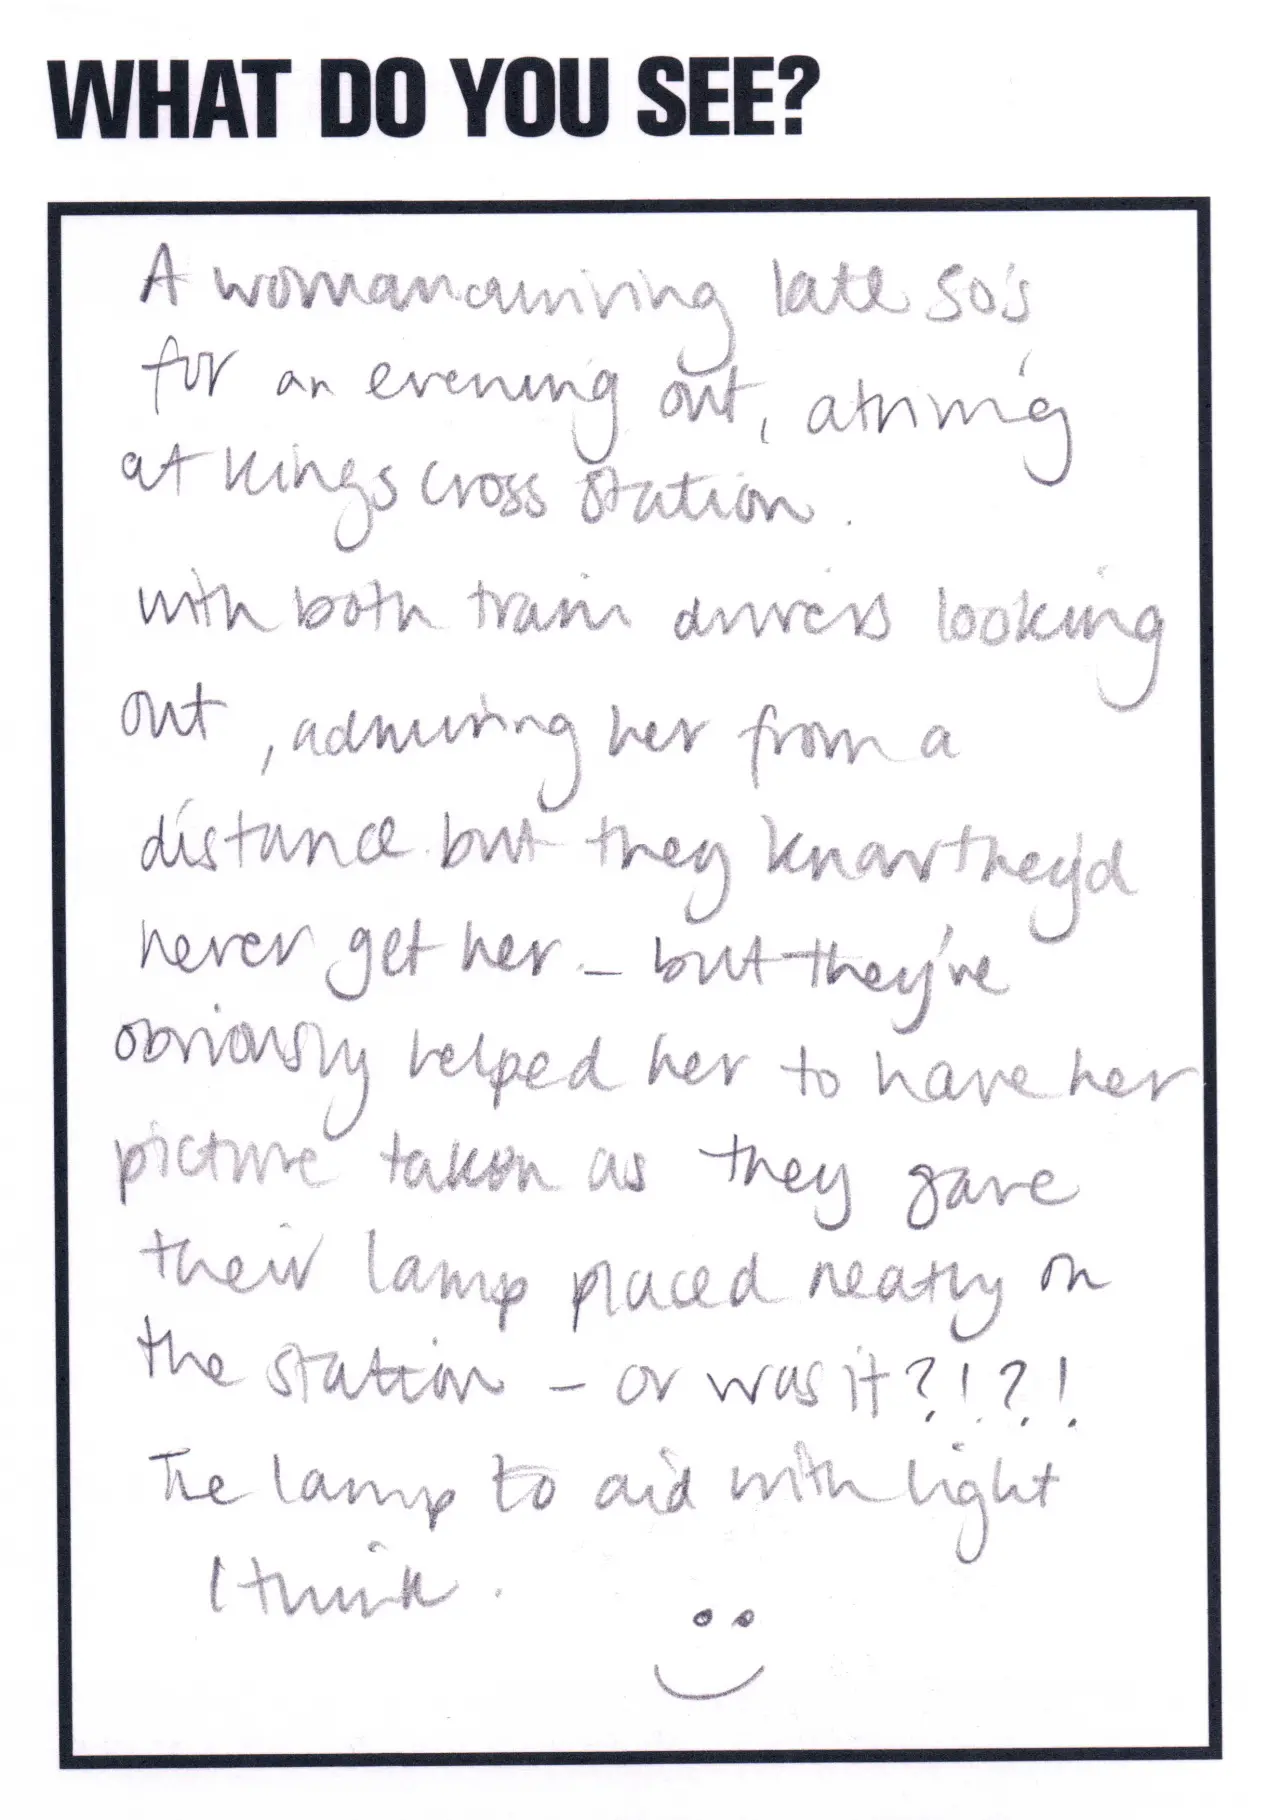 WHAT DO YOU SEE?
A woman arriving late 50's
for an evening out, arriving
at kings cross station.
with both train drivers looking
out, admiring her from a
distance but they know they'd
never get her - but they're
obviously helped her to have her
picture taken as they gave
their lamp placed neatly on
the station - or was it?!?!
The lamp to aid with light
I think.